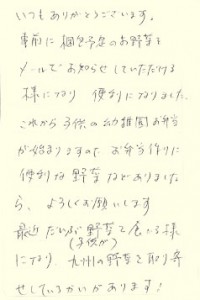 いつもありがとうございます。
事前に梱包予定のお野菜を
メールでお知らせしていただける
様になり 便利になりました。
これから子供の幼稚園お弁当
が始まりますので お弁当作りに
便利な野菜などありました
ら、よろしくお願いします。
最近 だいぶ野菜を食べる様
(子供が)
になり、九州の野菜を取り寄
せしているかいがあります!